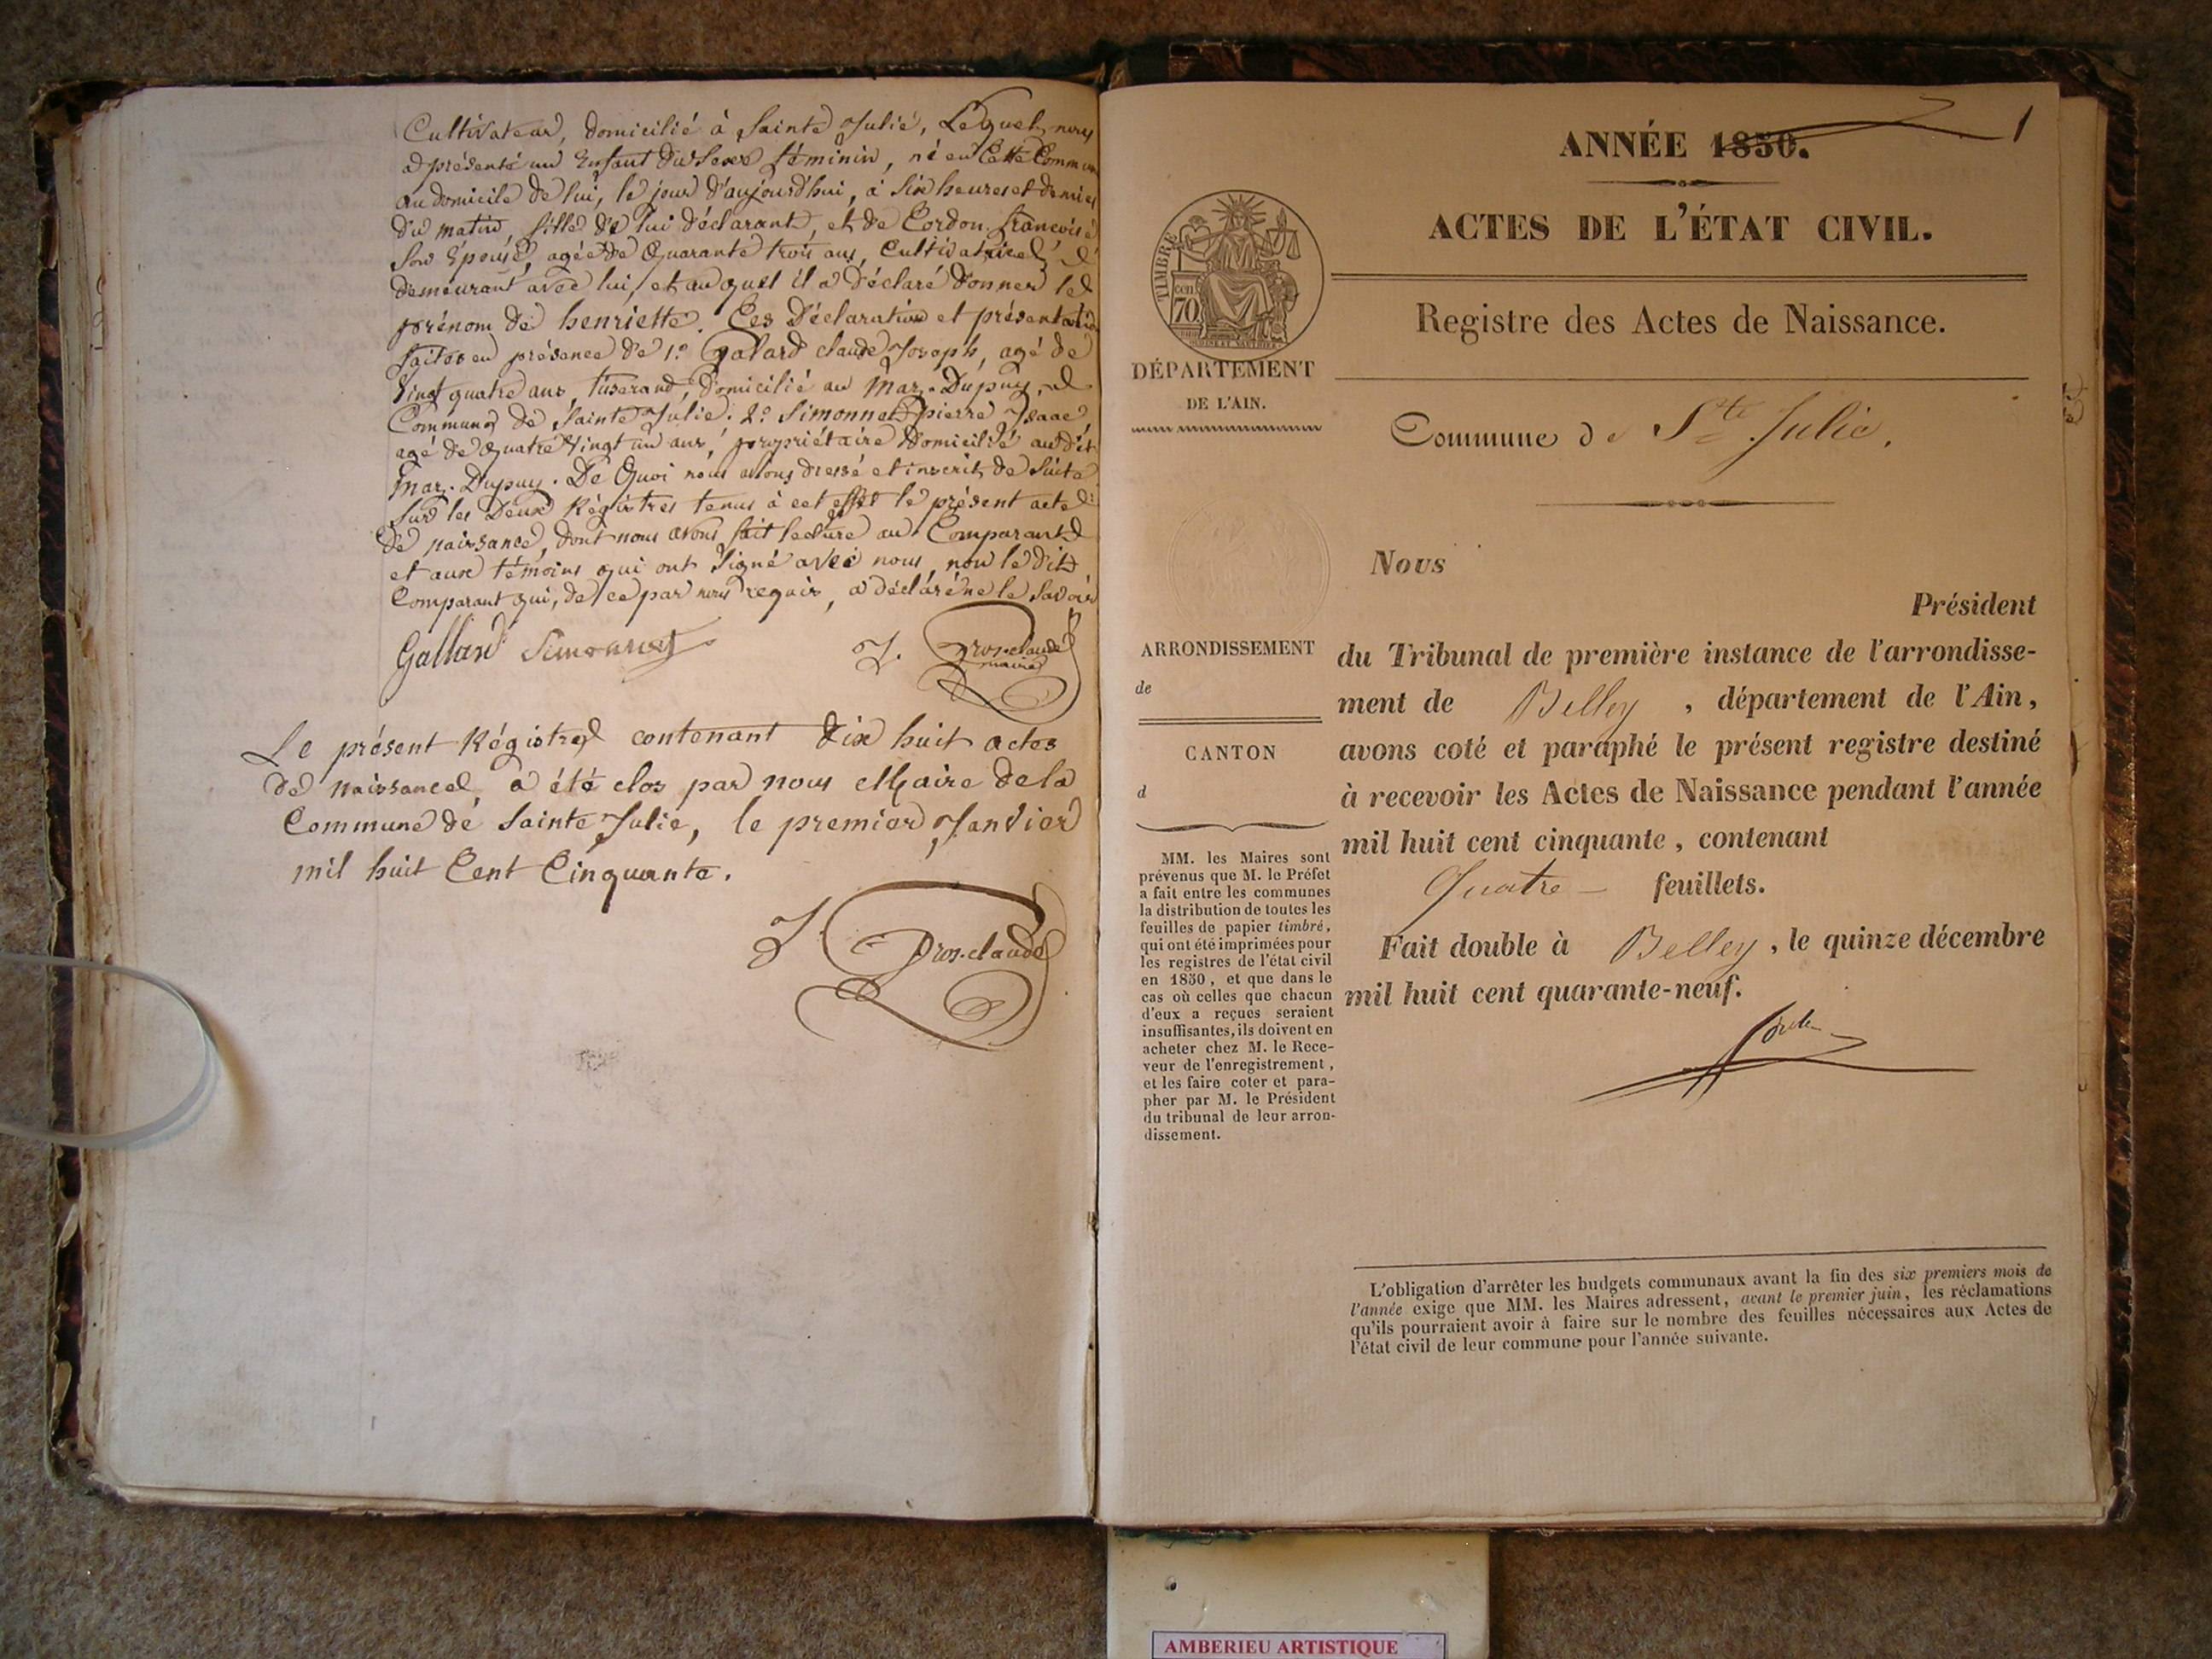 Cultivateur, domicilié à Sainte Julie, Lequel nous
a présenté un Enfant du Sexe féminin, né en Cette Commune
au domicile de lui, le jour d'aujourd'hui, à Six heures et demies
du matin, fille de lui déclarant, et de Cordon françoise
Son Epouse, agée de Quarante trois ans, Cultivatrice,
demeurant avec lui, et au quel il a déclaré donner le
prénom de henriette. Ces Déclaration et présentation
faites en présence de 1.º Galard claude Joseph, agé de
Vingt quatre ans, tisserand, domicilié au Maz-Dupuy,
Commune de Sainte Julie. 2.º Simonnet pierre Isaac,
agé de Quatre Vingt un ans, propriétaire domicilié au dit
Maz-Dupuy. De Quoi nous avons dressé et inscrit de Suite
Sur les Deux Régistres tenus à cet effet le présent acte
de naissance, dont nous avons fait lecture au Comparant
et aux témoins qui ont Signé avec nous, non le dit
Comparant qui, de ce par nous requis, a déclaré ne le Savoir
Galland Simonnet J. Pros-claude
maire
Le présent Régistre contenant dix huit actes
de naissance, a été clos par nous Maire de la
Commune de Sainte Julie, le premier Janvier
mil huit Cent Cinquante.
J. Pros-claude
1
ANNÉE 1850.
ACTES DE L'ÉTAT CIVIL.
Registre des Actes de Naissance.
TIMBRE
cen
70
DÉPARTEMENT
DE L'AIN.
Commune de Ste Julie.
Nous
Président
du Tribunal de première instance de l'arrondisse-
ment de Belley, département de l'Ain,
avons coté et paraphé le présent registre destiné
à recevoir les Actes de Naissance pendant l'année
mil huit cent cinquante, contenant
Quatre — feuillets.
Fait double à Belley, le quinze décembre
mil huit cent quarante-neuf.
ARRONDISSEMENT
de
CANTON
d
MM. les Maires sont
prévenus que M. le Préfet
a fait entre les communes
la distribution de toutes les
feuilles de papier timbré,
qui ont été imprimées pour
les registres de l'état civil
en 1850, et que dans le
cas où celles que chacun
d'eux a reçues seraient
insuffisantes, ils doivent en
acheter chez M. le Rece-
veur de l'enregistrement,
et les faire coter et para-
pher par M. le Président
du tribunal de leur arron-
dissement.
L'obligation d'arrêter les budgets communaux avant la fin des six premiers mois de
l'année exige que MM. les Maires adressent, avant le premier juin, les réclamations
qu'ils pourraient avoir à faire sur le nombre des feuilles nécessaires aux Actes de
l'état civil de leur commune pour l'année suivante.
AMBERIEU ARTISTIQUE